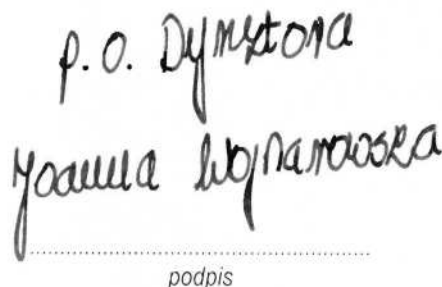 p.o. Dyrektora
Joanna Wojnarowska
....................................................
podpis